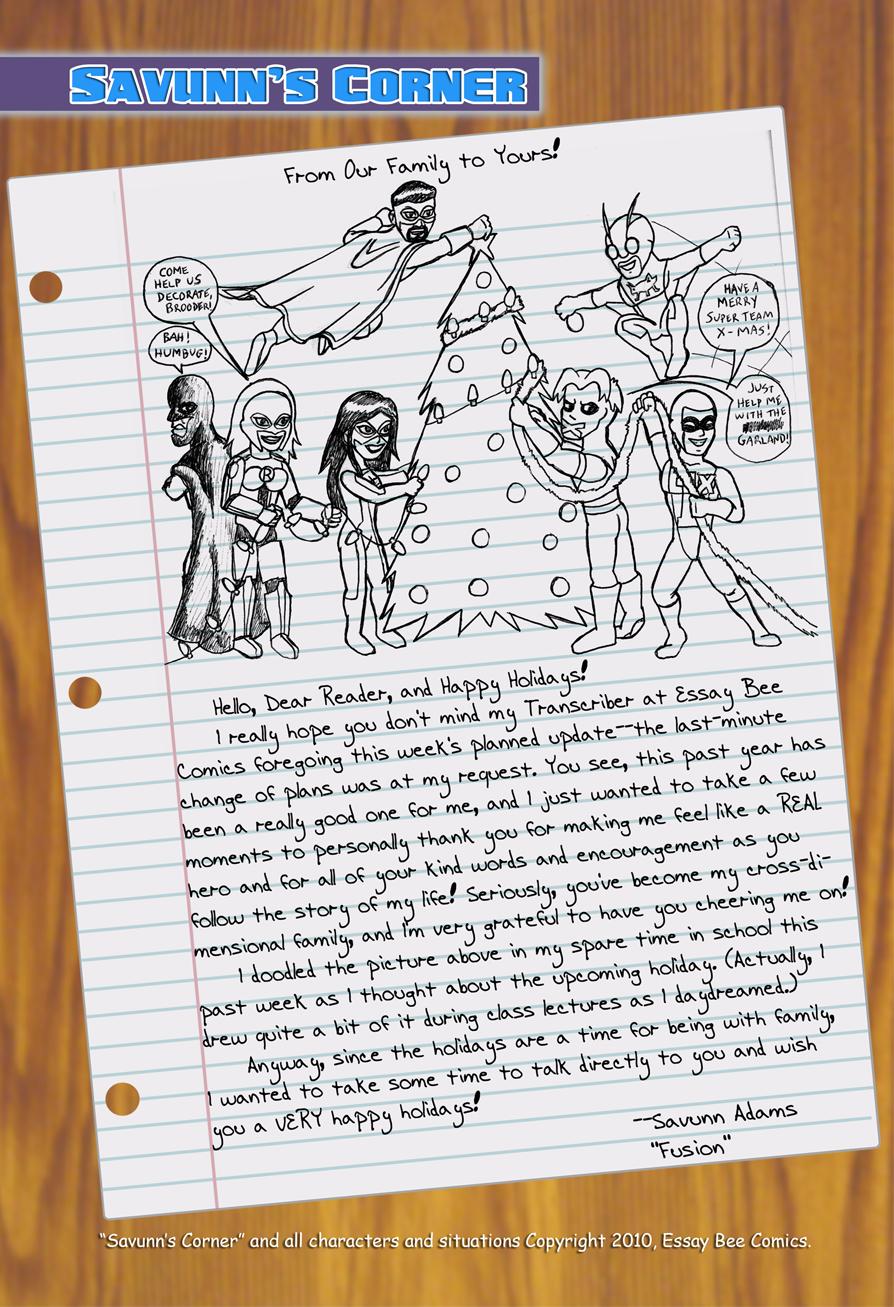 SAVUNN'S CORNER
From Our Family to Yours!
COME
HELP US
DECORATE,
BROODER!
BAH!
HUMBUG!
HAVE A
MERRY
SUPER TEAM
X-MAS!
JUST
HELP ME
WITH THE
GARLAND!
R
X
Hello, Dear Reader, and Happy Holidays!
I really hope you don't mind my Transcriber at Essay Bee
Comics foregoing this week's planned update--the last-minute
change of plans was at my request. You see, this past year has
been a really good one for me, and I just wanted to take a few
moments to personally thank you for making me feel like a REAL
hero and for all of your kind words and encouragement as you
follow the story of my life! Seriously, you've become my cross-di-
mensional family, and I'm very grateful to have you cheering me on!
I doodled the picture above in my spare time in school this
past week as I thought about the upcoming holiday. (Actually, I
drew quite a bit of it during class lectures as I daydreamed.)
Anyway, since the holidays are a time for being with family,
I wanted to take some time to talk directly to you and wish
you a VERY happy holidays!
--Savunn Adams
"Fusion"
"Savunn's Corner" and all characters and situations Copyright 2010, Essay Bee Comics.